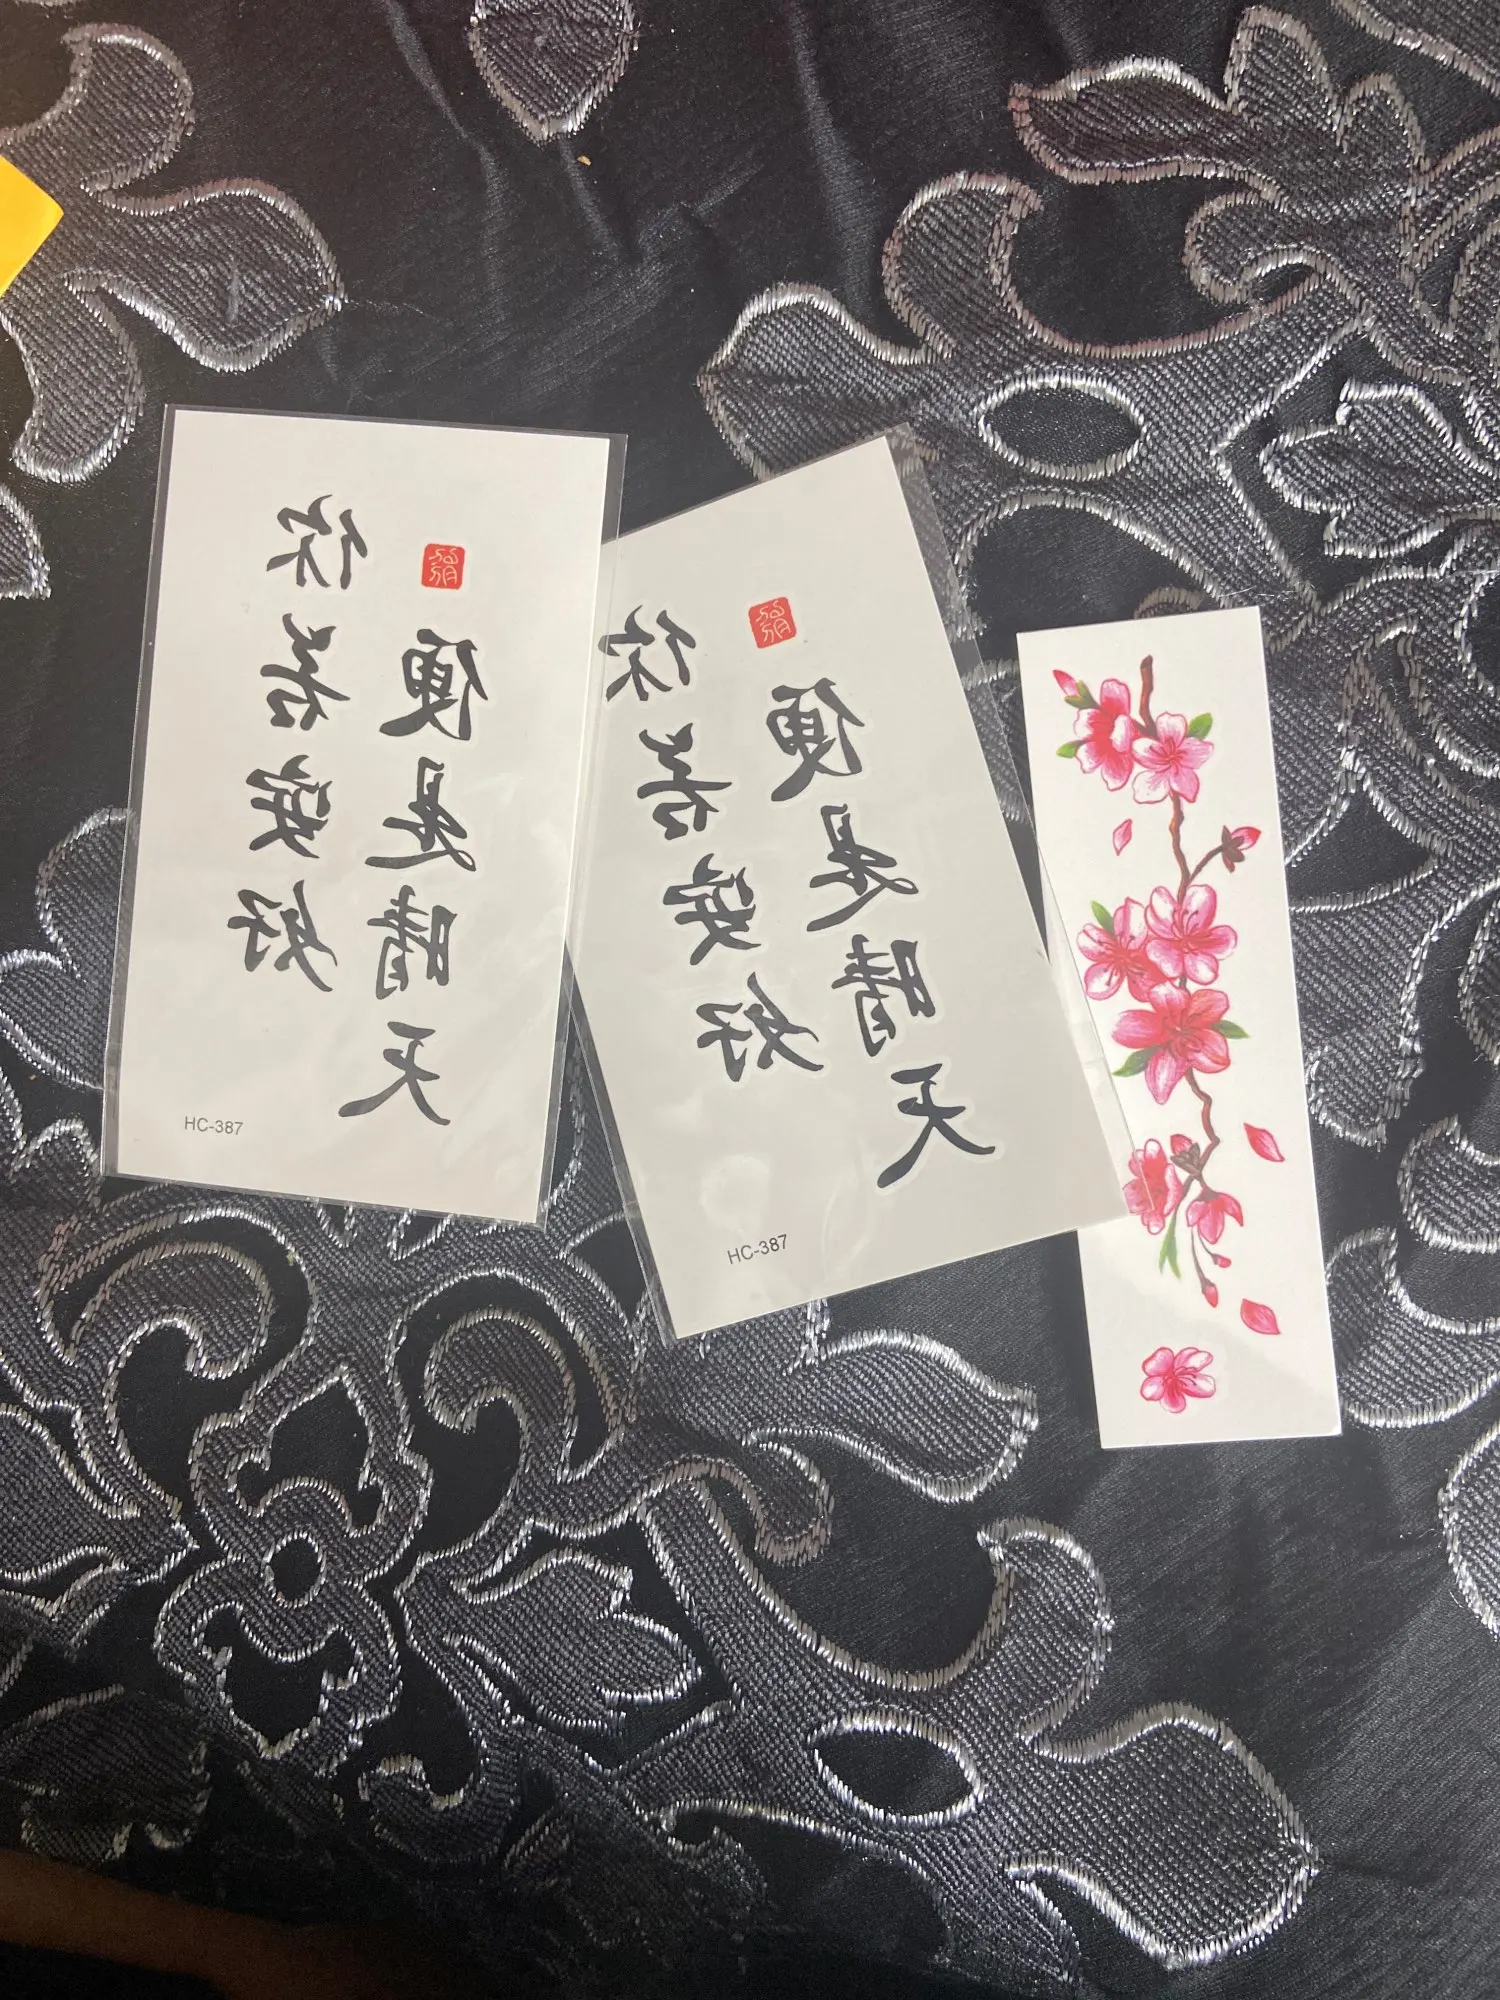 你若安好
便是晴天
HC-387
你若安好
便是晴天
HC-387